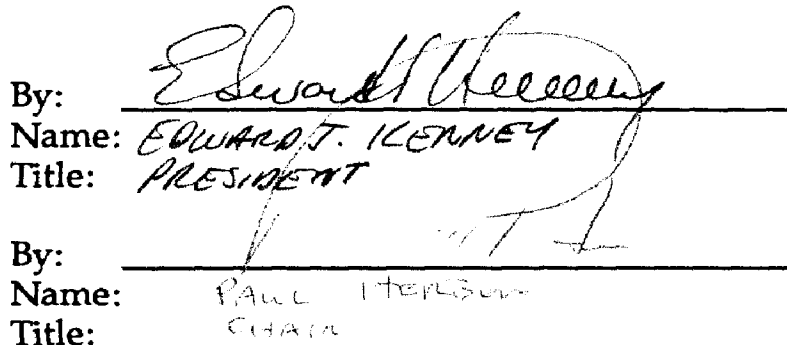 By: Edward J. Kenney
Name: EDWARD J. KENNEY
Title: PRESIDENT
By:
Name: PAUL
Title: CHAIR